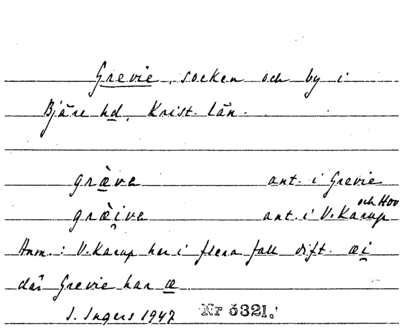 Grevie, socken och by i
Bjäre hd, Krist. län.
græ̀va ant. i Grevie
græ̀i̯va ant. i V. Karup och Hov
Anm.: V. Karup har i flera fall dift. æi̯
där Grevie har æ.
I. Ingers 1947 Nr 6321.